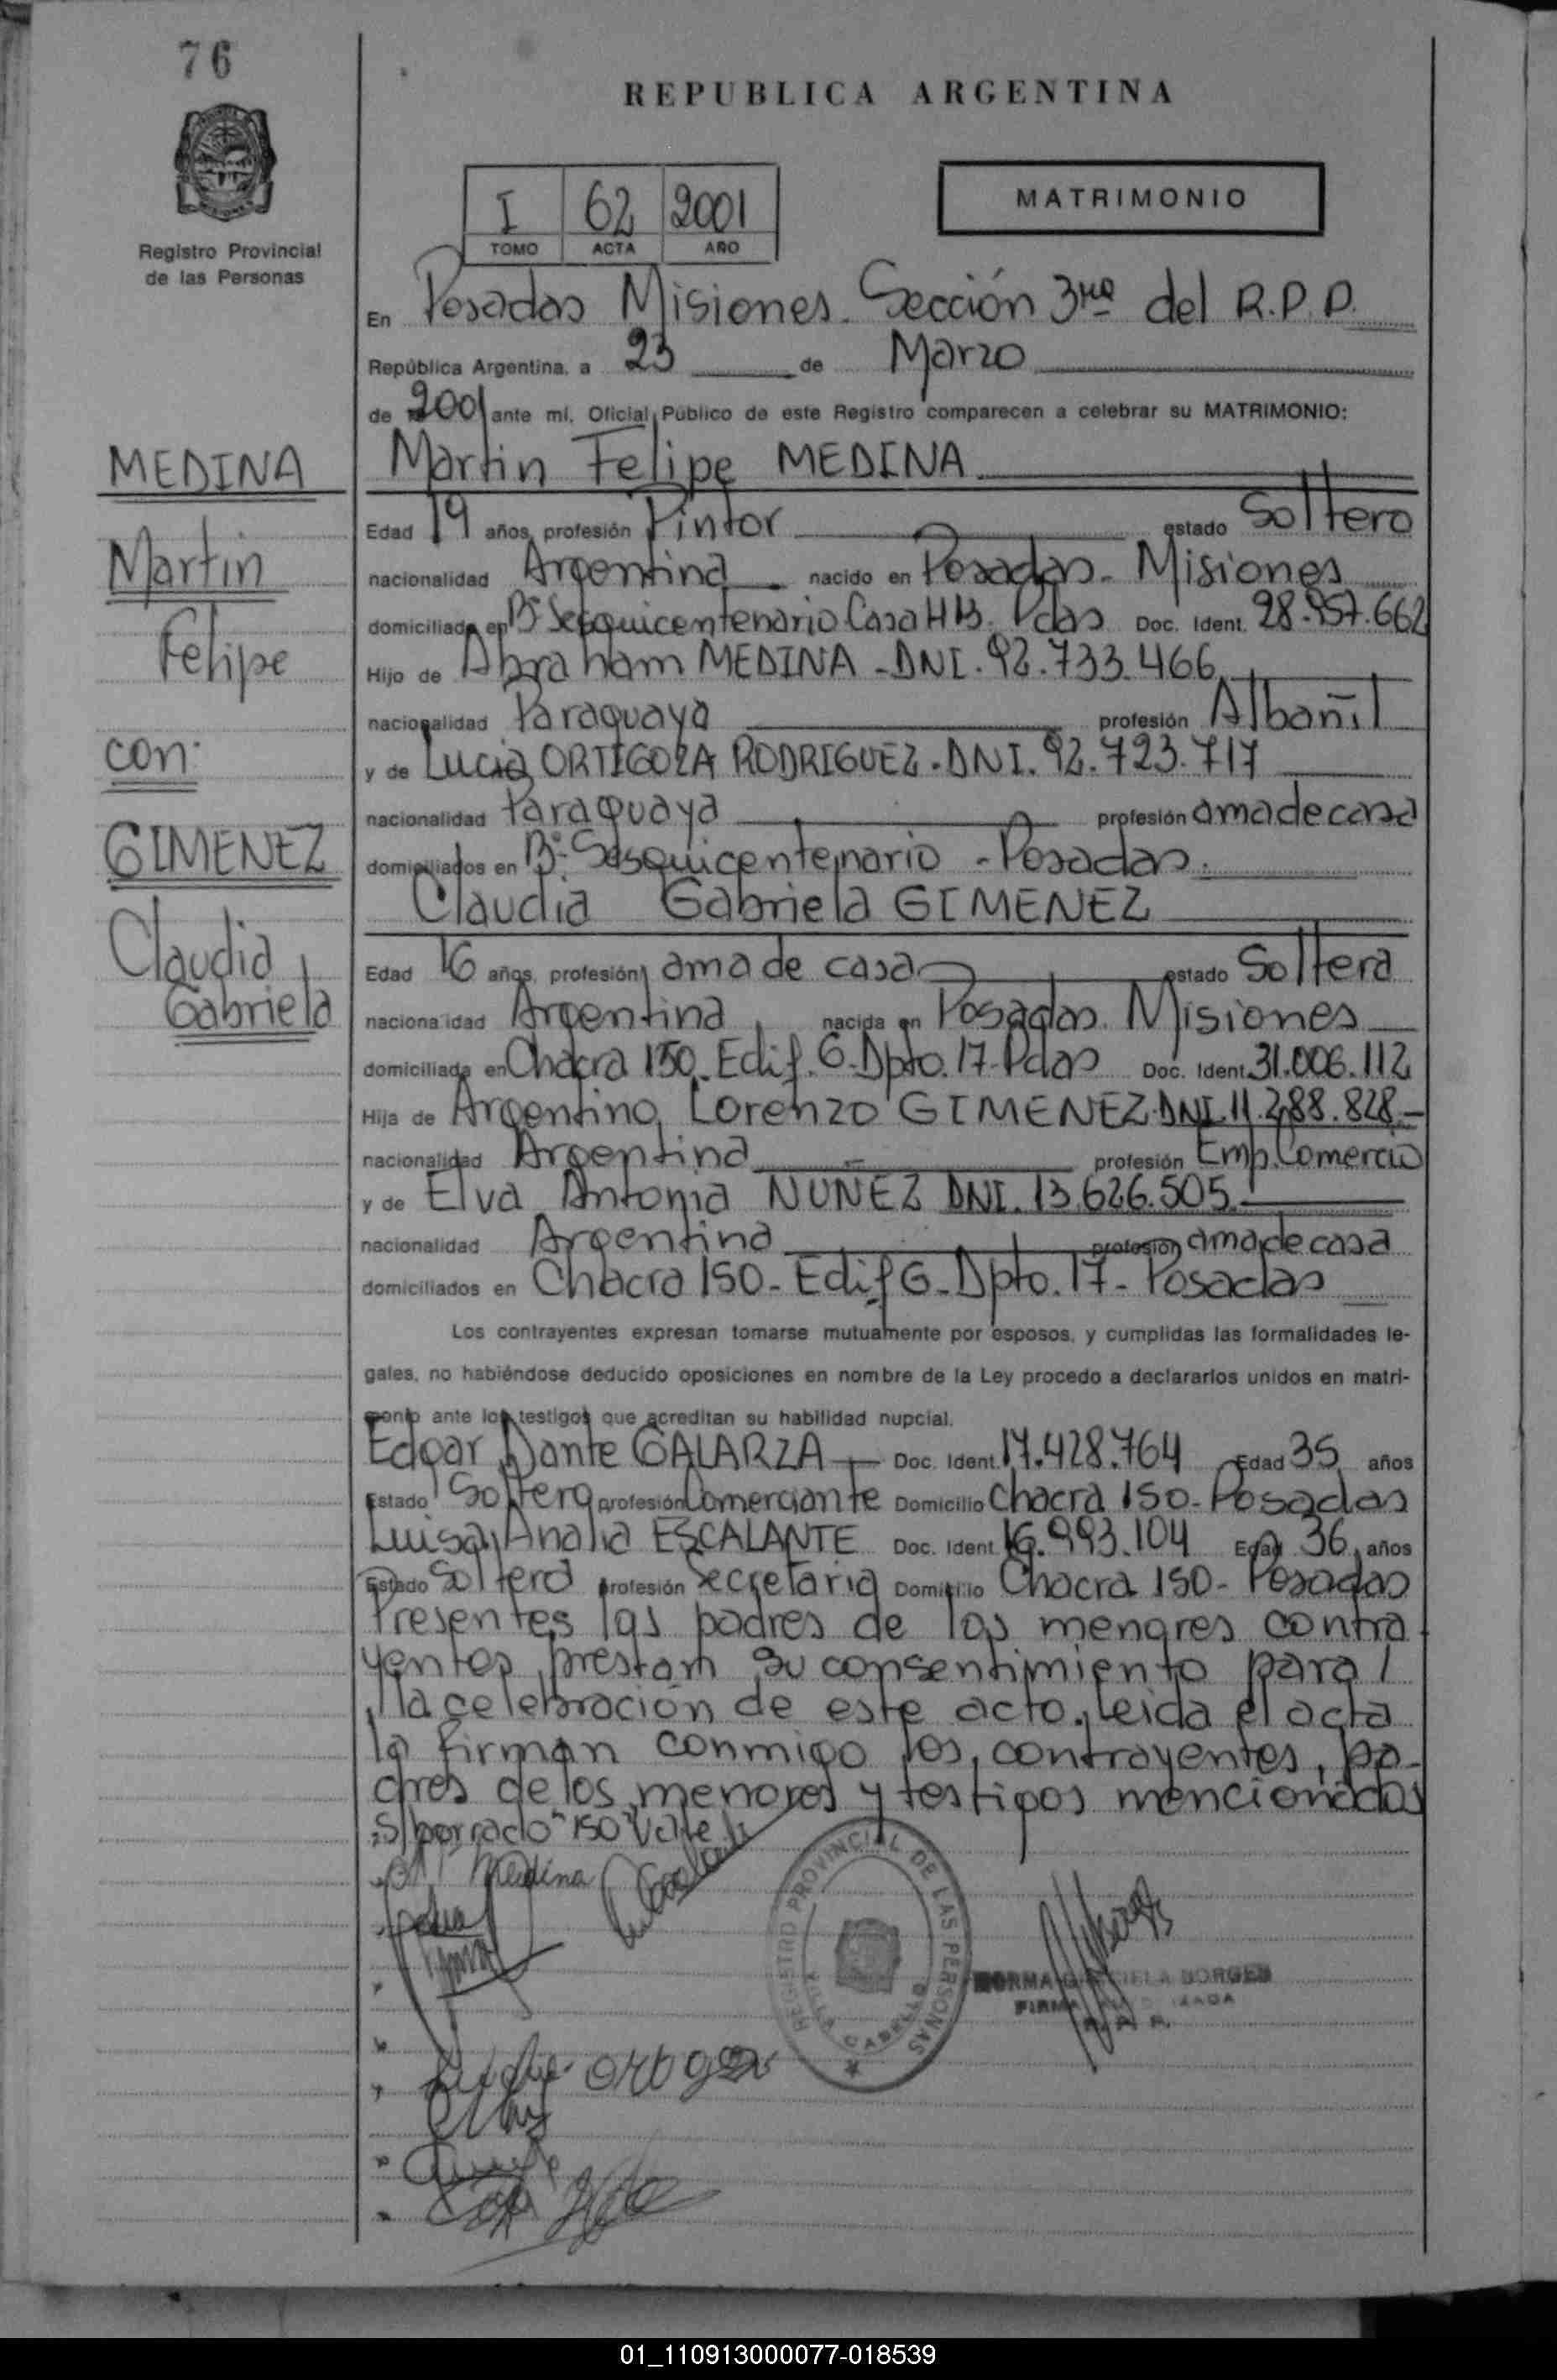 76
REPUBLICA ARGENTINA
I 62 2001
TOMO ACTA AÑO
MATRIMONIO
Registro Provincial
de las Personas
En Posadas Misiones. Sección 3ra del R.P.P.
República Argentina, a 23 de Marzo
de 2001 ante mí, Oficial Público de este Registro comparecen a celebrar su MATRIMONIO:
MEDINA
Martin
Felipe
con:
GIMENEZ
Claudia
Gabriela
Martin Felipe MEDINA
Edad 19 años, profesión Pintor estado Soltero
nacionalidad Argentina nacido en Posadas - Misiones
domiciliado en Bº Sesquicentenario Casa H13. Pdas Doc. Ident. 28.957.662
Hijo de Abraham MEDINA - DNI. 92.733.466
nacionalidad Paraguaya profesión Albañil
y de Lucia ORTIGOZA RODRIGUEZ - DNI. 92.723.717
nacionalidad Paraguaya profesión ama de casa
domiciliados en Bº Sesquicentenario - Posadas.
Claudia Gabriela GIMENEZ
Edad 16 años, profesión ama de casa estado Soltera
nacionalidad Argentina nacida en Posadas. Misiones
domiciliada en Chacra 150. Edif. G. Dpto. 17. Pdas Doc. Ident. 31.006.112
Hija de Argentino Lorenzo GIMENEZ. DNI. 11.288.828.-
nacionalidad Argentina profesión Emp. Comercio
y de Elva Antonia NUÑEZ DNI. 13.626.505.-
nacionalidad Argentina profesión ama de casa
domiciliados en Chacra 150 - Edif G - Dpto. 17 - Posadas
Los contrayentes expresan tomarse mutuamente por esposos, y cumplidas las formalidades le-
gales, no habiéndose deducido oposiciones en nombre de la Ley procedo a declararlos unidos en matri-
monio ante los testigos que acreditan su habilidad nupcial.
Edgar Dante GALARZA Doc. Ident. 17.428.764 Edad 35 años
Estado Soltero profesión Comerciante Domicilio Chacra 150 - Posadas
Luisa Analia ESCALANTE Doc. Ident. 16.993.104 Edad 36 años
Estado Soltera profesión Secretaria Domicilio Chacra 150 - Posadas
Presentes los padres de los menores contra
yentes prestan su consentimiento para
la celebración de este acto. Leida el acta
la firman conmigo los contrayentes, pa-
dres de los menores y testigos mencionados
S/borrado "150" Vale
Medina
REGISTRO PROVINCIAL DE LAS PERSONAS
VILLA CABELLO
NORMA GRACIELA BORGES
FIRMA AUTORIZADA
01_110913000077-018539